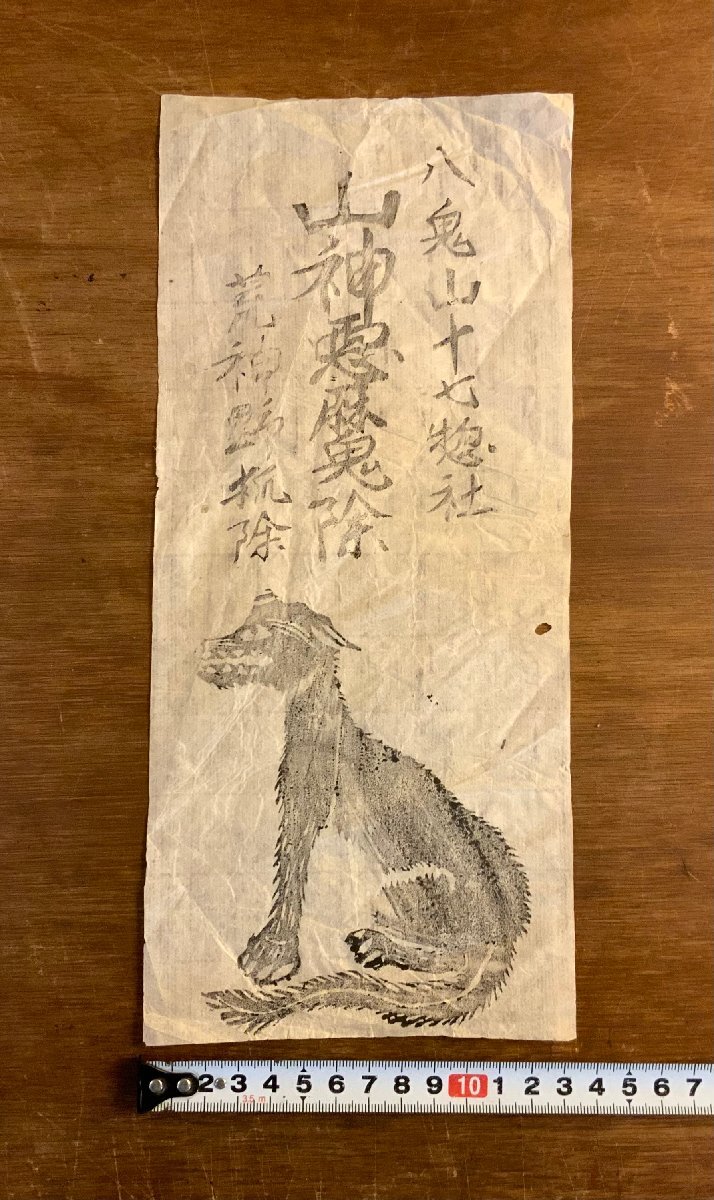 八鬼山十七惣社
山神悪魔除
荒神野狐除
2 3 4 5 6 7 8 9 10 1 2 3 4 5 6 7
3.5m